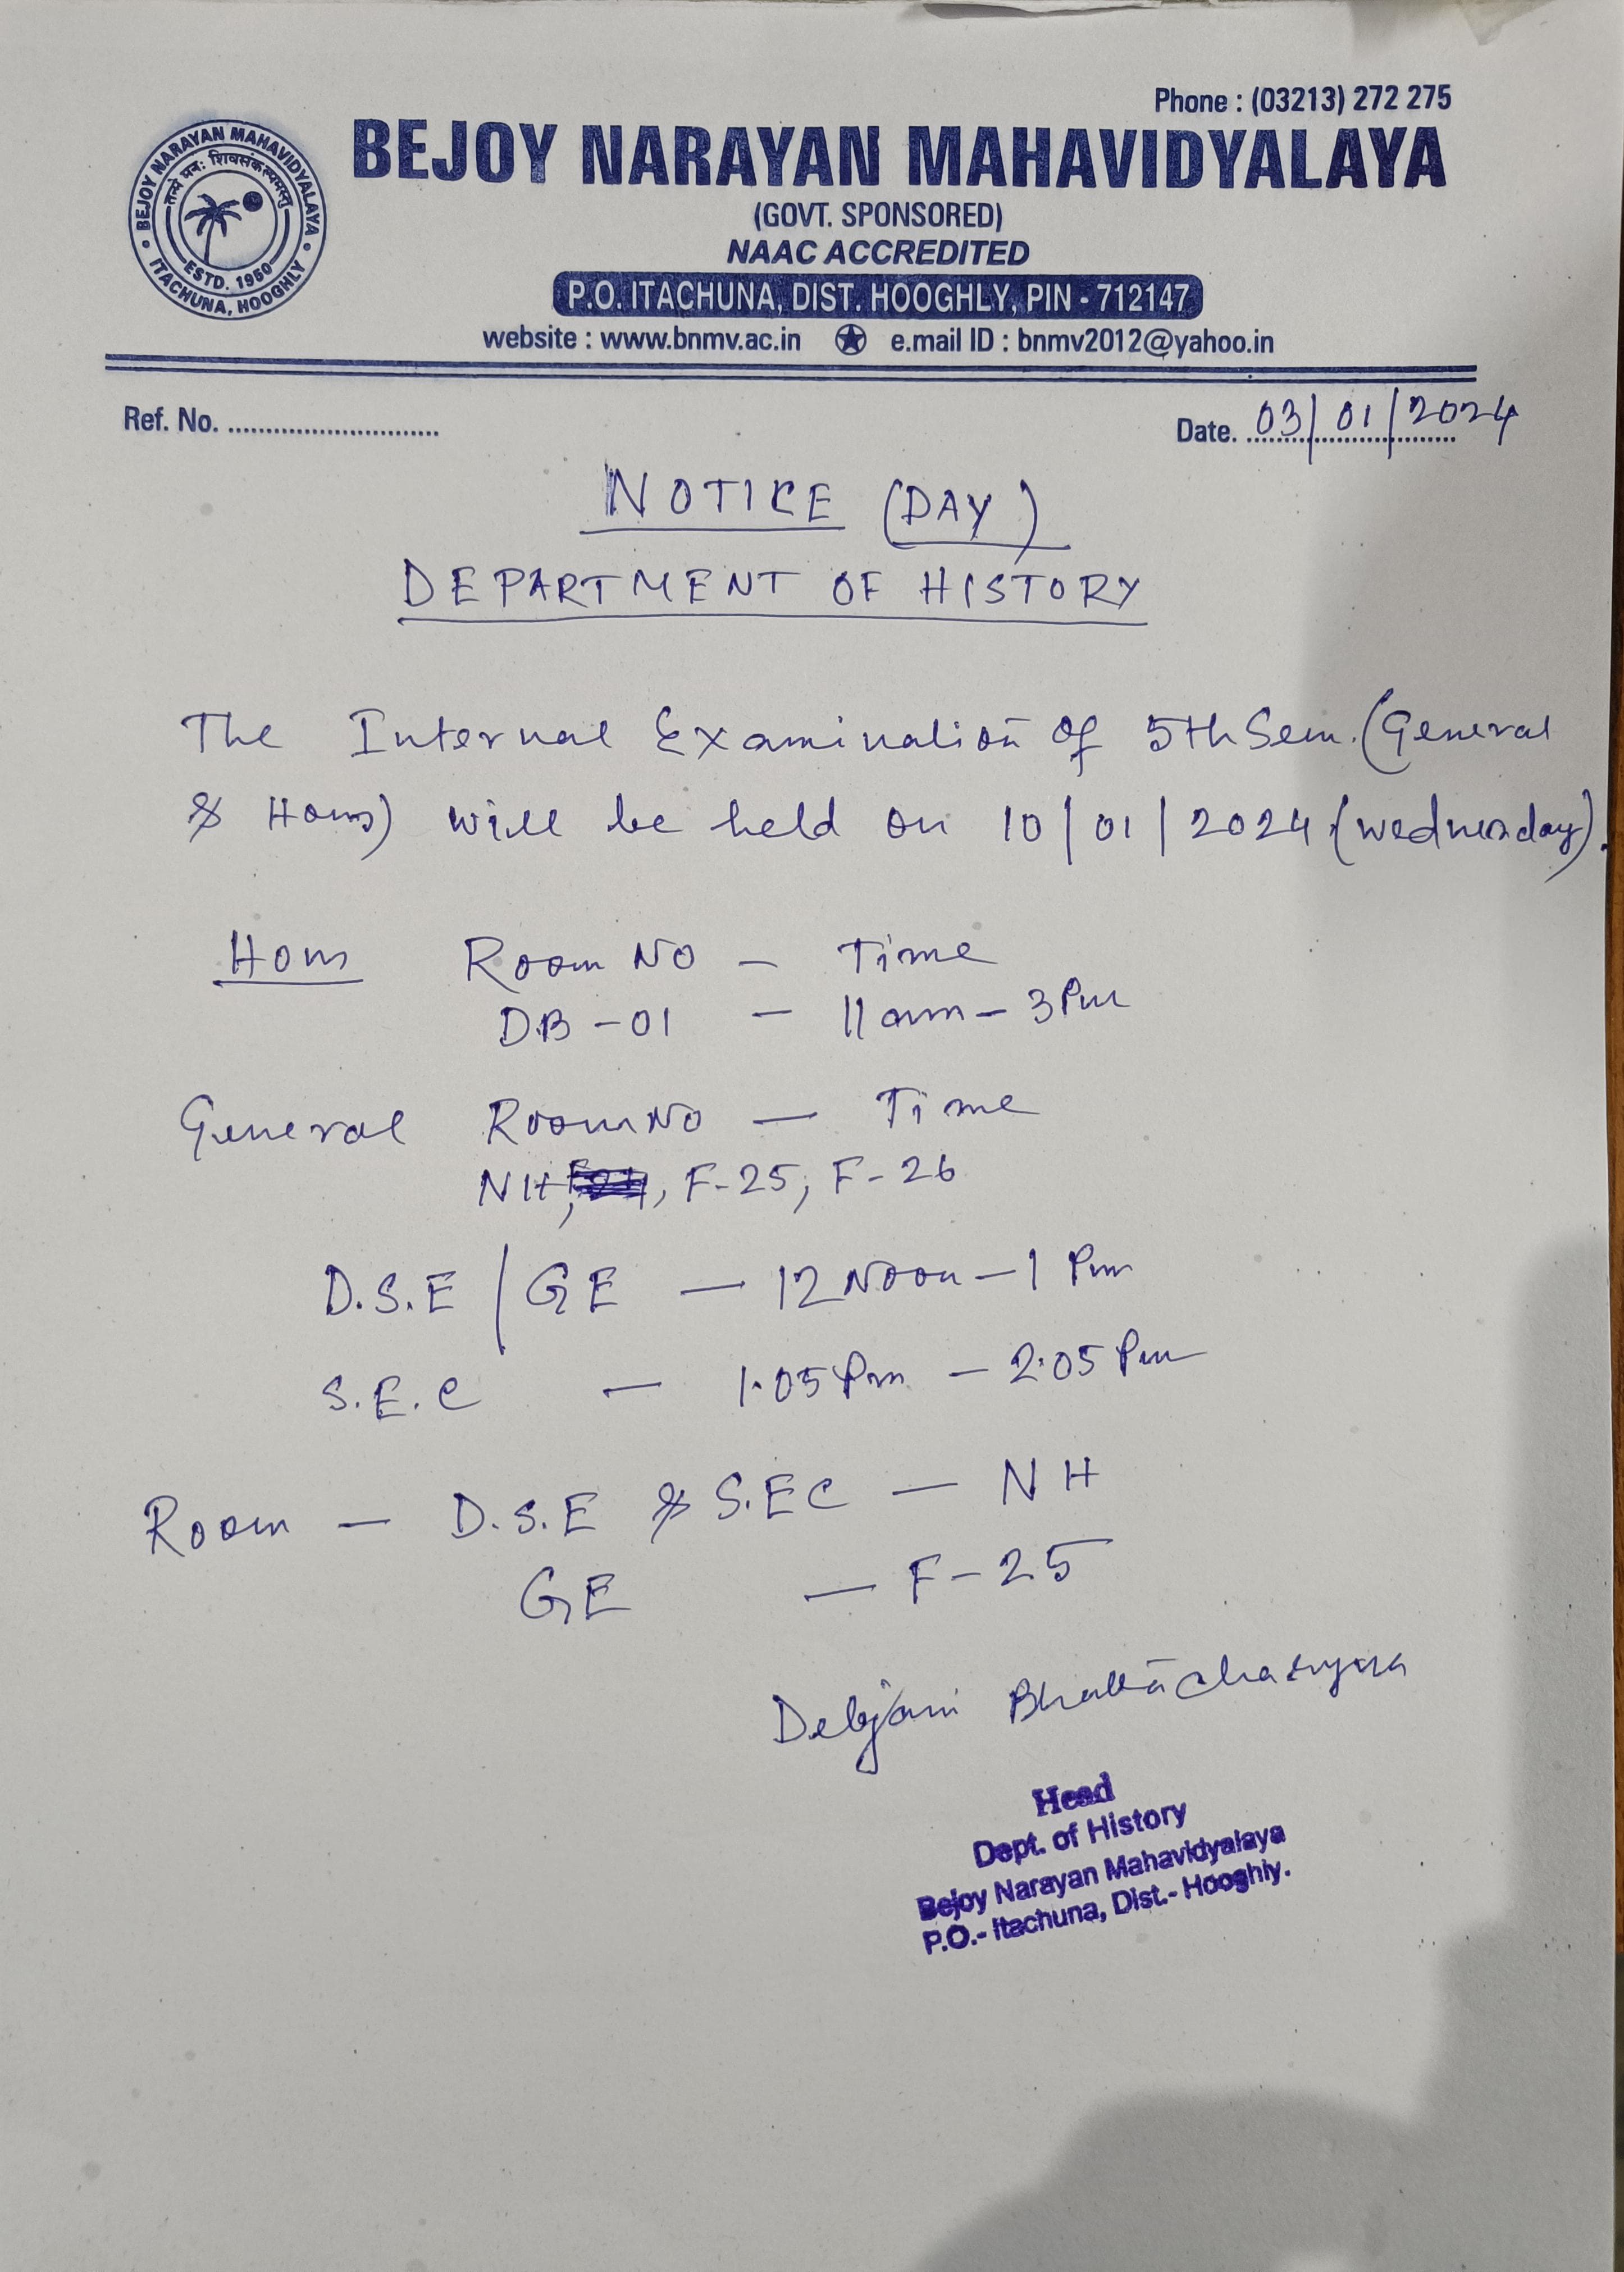 Phone : (03213) 272 275
BEJOY NARAYAN MAHAVIDYALAYA
(GOVT. SPONSORED)
NAAC ACCREDITED
P.O. ITACHUNA, DIST. HOOGHLY, PIN - 712147
website : www.bnmv.ac.in e.mail ID : bnmv2012@yahoo.in
BEJOY NARAYAN MAHAVIDYALAYA
तन्मे मनः शिवसंकल्पमस्तु
ESTD. 1950
ITACHUNA, HOOGHLY
Ref. No. ............................
Date. 03/01/2024
NOTICE (DAY)
DEPARTMENT OF HISTORY
The Internal Examination of 5th Sem. (General
& Hons) will be held on 10/01/2024 (wednesday).
Hons Room No - Time
DB-01 - 11 am - 3 Pm
General Room No - Time
NH, F-25, F-26
D.S.E / GE - 12 Noon - 1 Pm
S.E.C - 1.05 Pm - 2.05 Pm
Room - D.S.E & S.EC - NH
GE - F-25
Debjani Bhattacharyya
Head
Dept. of History
Bejoy Narayan Mahavidyalaya
P.O.- Itachuna, Dist.- Hooghly.